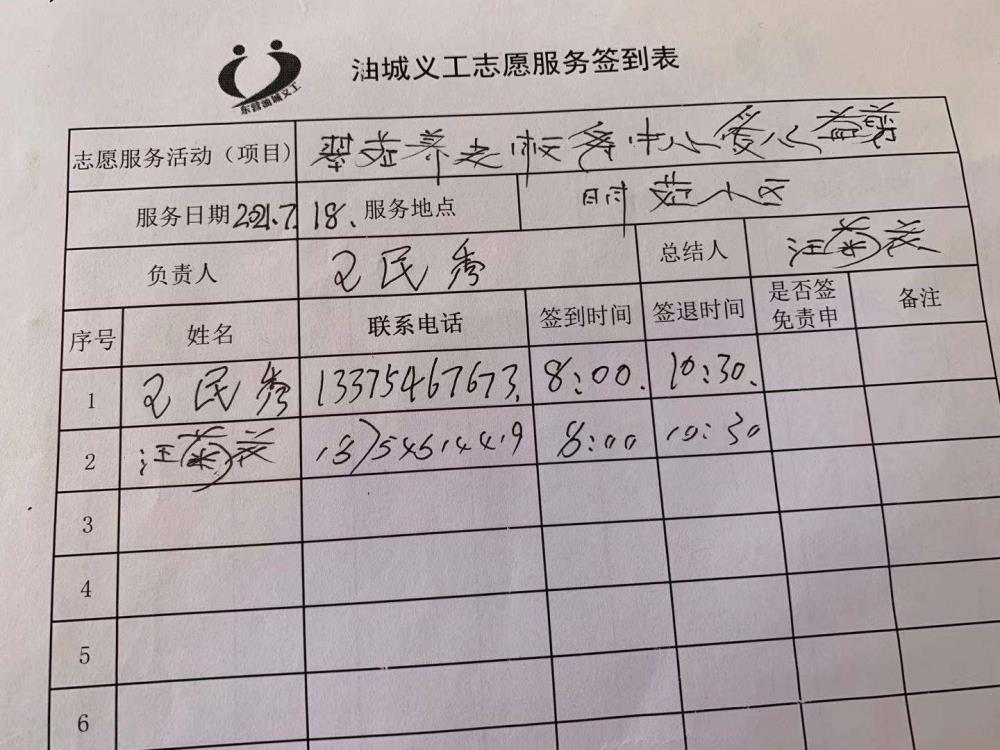 东营油城义工
油城义工志愿服务签到表
志愿服务活动（项目） 养老服务中心爱心益剪
服务日期 2021.7.18. 服务地点 小区
负责人 王民秀 总结人 汪菊
序号 姓名 联系电话 签到时间 签退时间 是否签免责申 备注
1 王民秀 13375467673. 8:00. 10:30.
2 汪菊 18754614419 8:00 10:30
3
4
5
6